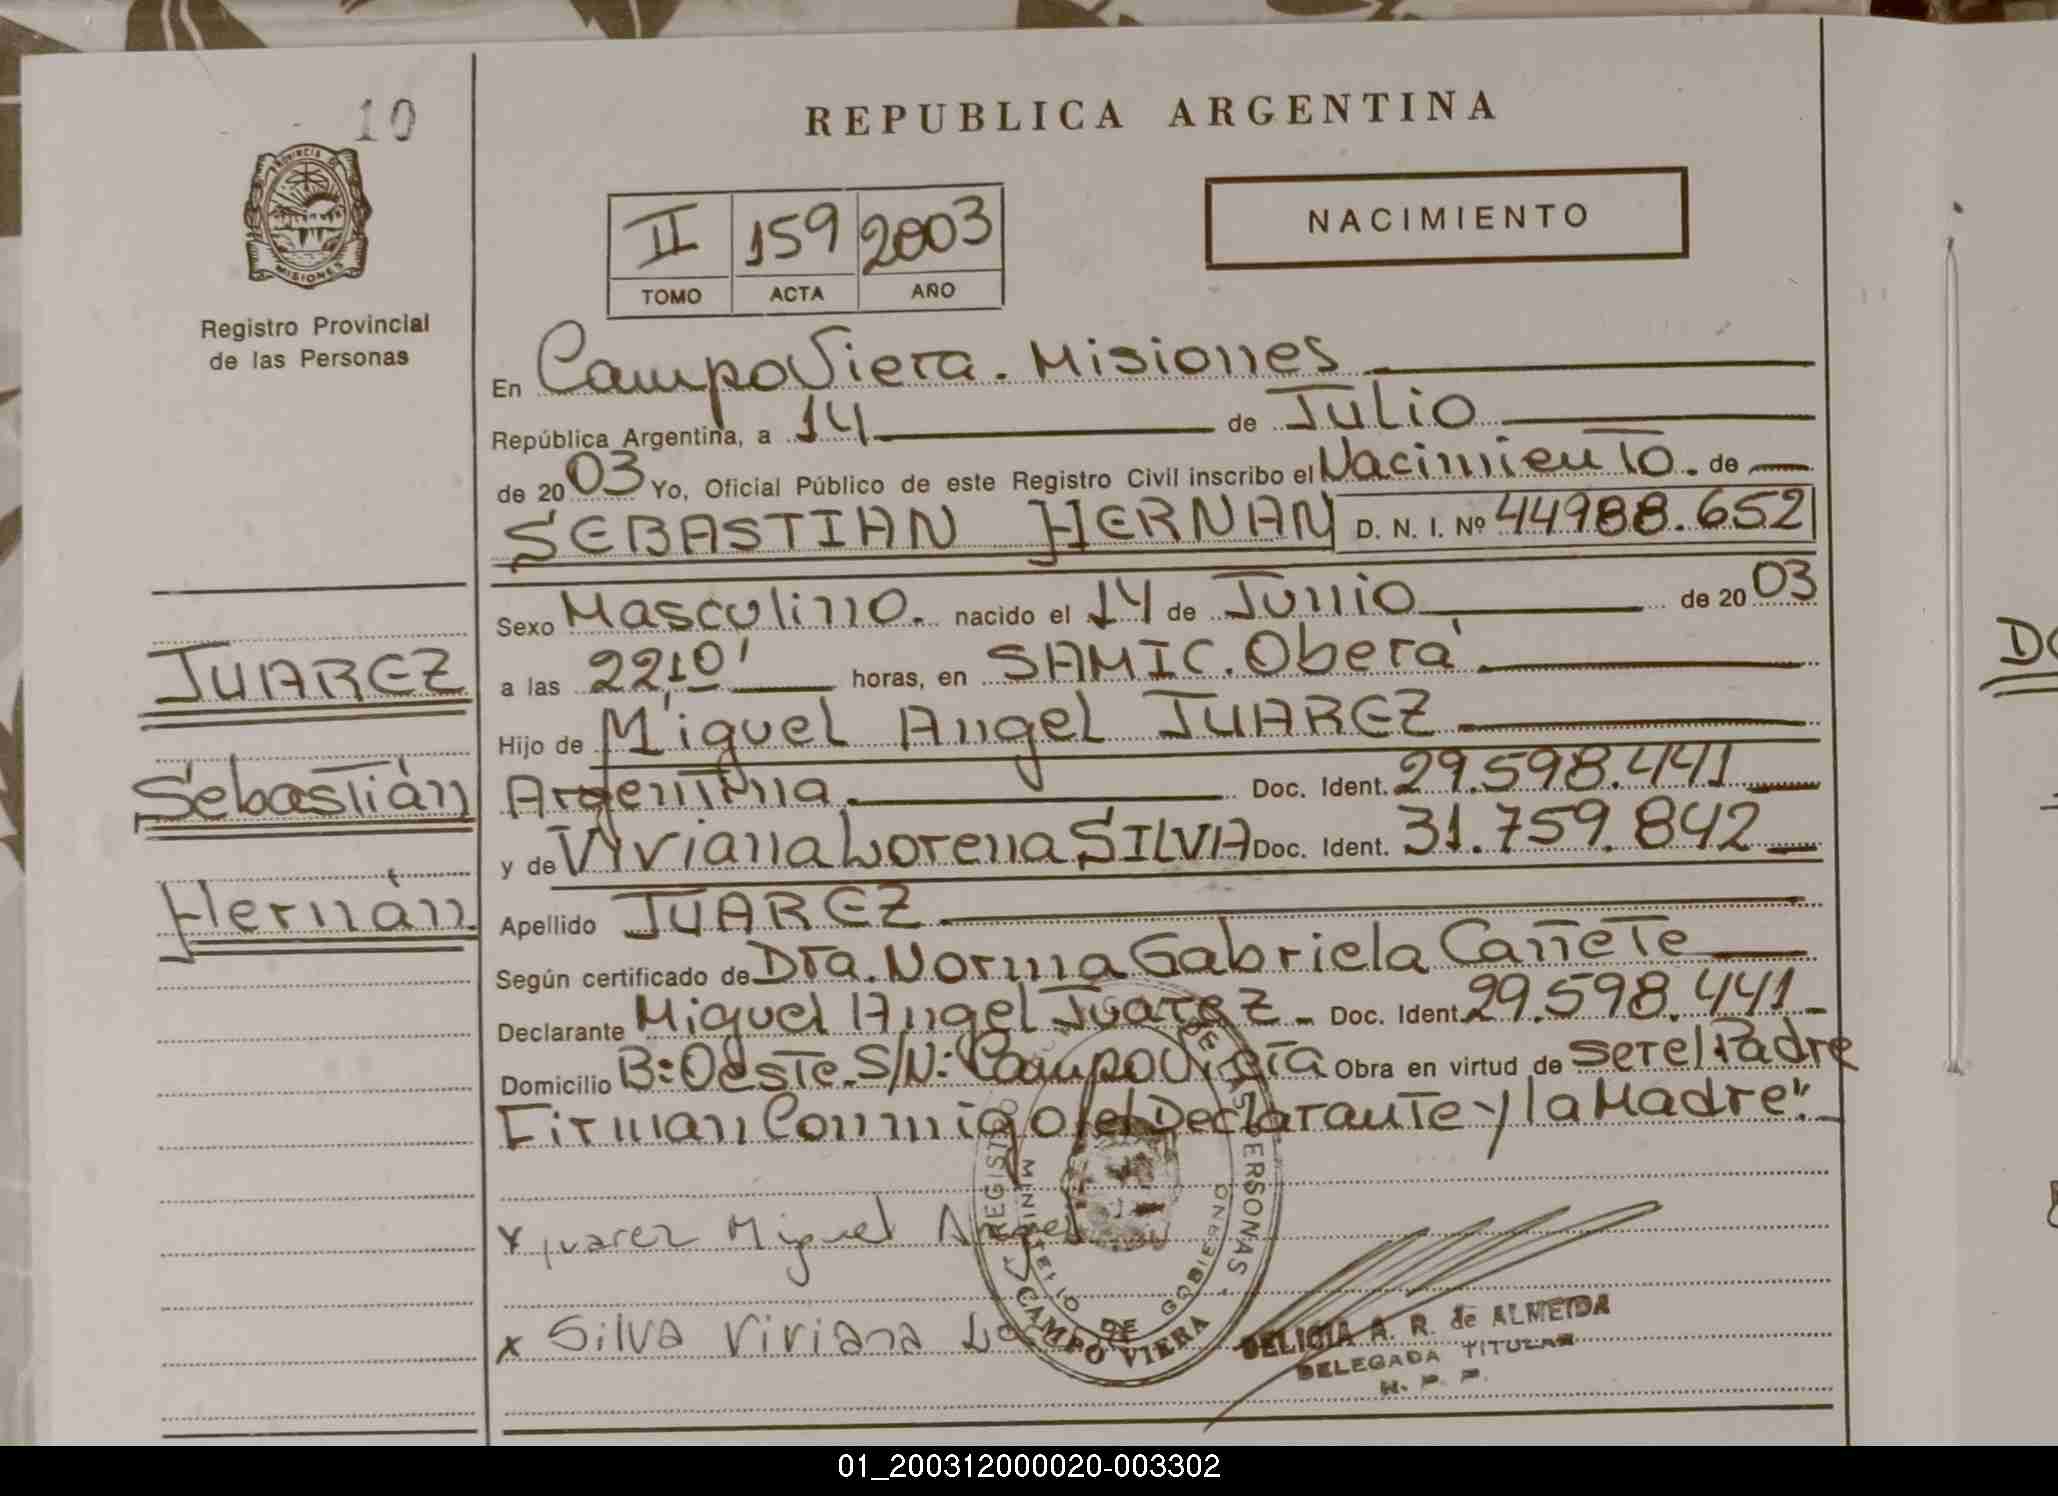 10
PROVINCIA DE
MISIONES
Registro Provincial
de las Personas
REPUBLICA ARGENTINA
II 159 2003
TOMO ACTA AÑO
NACIMIENTO
En Campo Viera. Misiones
República Argentina, a 14 de Julio
de 2003 Yo, Oficial Público de este Registro Civil inscribo el Nacimiento. de
SEBASTIAN HERNAN D. N. I. Nº 44988.652
Sexo Masculino. nacido el 14 de Junio de 2003
a las 22,10' horas, en SAMIC. Oberá
Hijo de Miguel Angel JUAREZ
Argentina Doc. Ident. 29.598.441
y de Viviana Lorena SILVA Doc. Ident. 31.759.842
Apellido JUAREZ
Según certificado de Dra. Norma Gabriela Cañete
Declarante Miguel Angel Juarez Doc. Ident. 29.598.441
Domicilio B: Oeste. S/N: Campo Viera Obra en virtud de ser el Padre
Firman Conmigo el Declarante y la Madre".
x Juarez Miguel Angel
x Silva Viviana
JUAREZ
Sebastián
Hernán
REGISTRO DE LAS PERSONAS
MINISTERIO DE GOBIERNO
CAMPO VIERA
DELICIA A. R. de ALMEIDA
DELEGADA TITULAR
R. P. P.
01_200312000020-003302